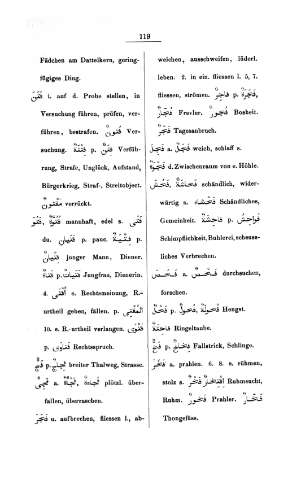 119
Fädchen am Dattelkern, gering-
fügiges Ding.
فَتَنَ i. auf d. Probe stellen, in
Versuchung führen, prüfen, ver-
führen, bestrafen. فُتُون Ver-
suchung. فِتْنَة p. فِتَن Verfüh-
rung, Strafe, Unglück, Aufstand,
Bürgerkrieg, Straf-, Streitobject.
مَفْتُون verrückt.
mannhaft, edel s. فَتًى
du. فَتَيَان p. pauc. فِتْيَة p.
فِتْيَان junger Mann, Diener.
فَتَاة p. فَتَيَات Jungfrau, Dienerin.
d. أَفْتَى s. Rechtsmeinung, R.-
urtheil geben, fällen. p.
10. s. R.-urtheil verlangen. فَتْوَى
p. Rechtsspruch.
فَجّ p. فِجَاج breiter Thalweg, Strasse.
s. plötzl. über-
fallen, überraschen.
فَجَرَ u. aufbrechen, fliessen l., ab-
weichen, ausschweifen, lüderl.
leben. 2. in ein. fliessen l. 5, 7.
fliessen, strömen. فَاجِر p. فَجَرَة
Frevler. فُجُور Bosheit.
فَجْر Tagesanbruch.
weich, schlaff s.
فَجْوَة d. Zwischenraum von e. Höhle.
schändlich, wider-
wärtig s. فَحْشَاء Schändliches,
Gemeinheit. فَاحِشَة p. فَوَاحِش
Schimpflichkeit, Buhlerei, scheuss-
liches Verbrechen.
durchsuchen,
forschen.
فَحْل p. فُحُول Hengst.
فَاخِتَة Ringeltaube.
فَخّ p. فِخَاخ Fallstrick, Schlinge.
فَخَرَ a. prahlen. 6. 8. s. rühmen,
stolz s. فَخْر Ruhmsucht,
Ruhm. فَخُور Prahler. فَخَّار
Thongefäss.